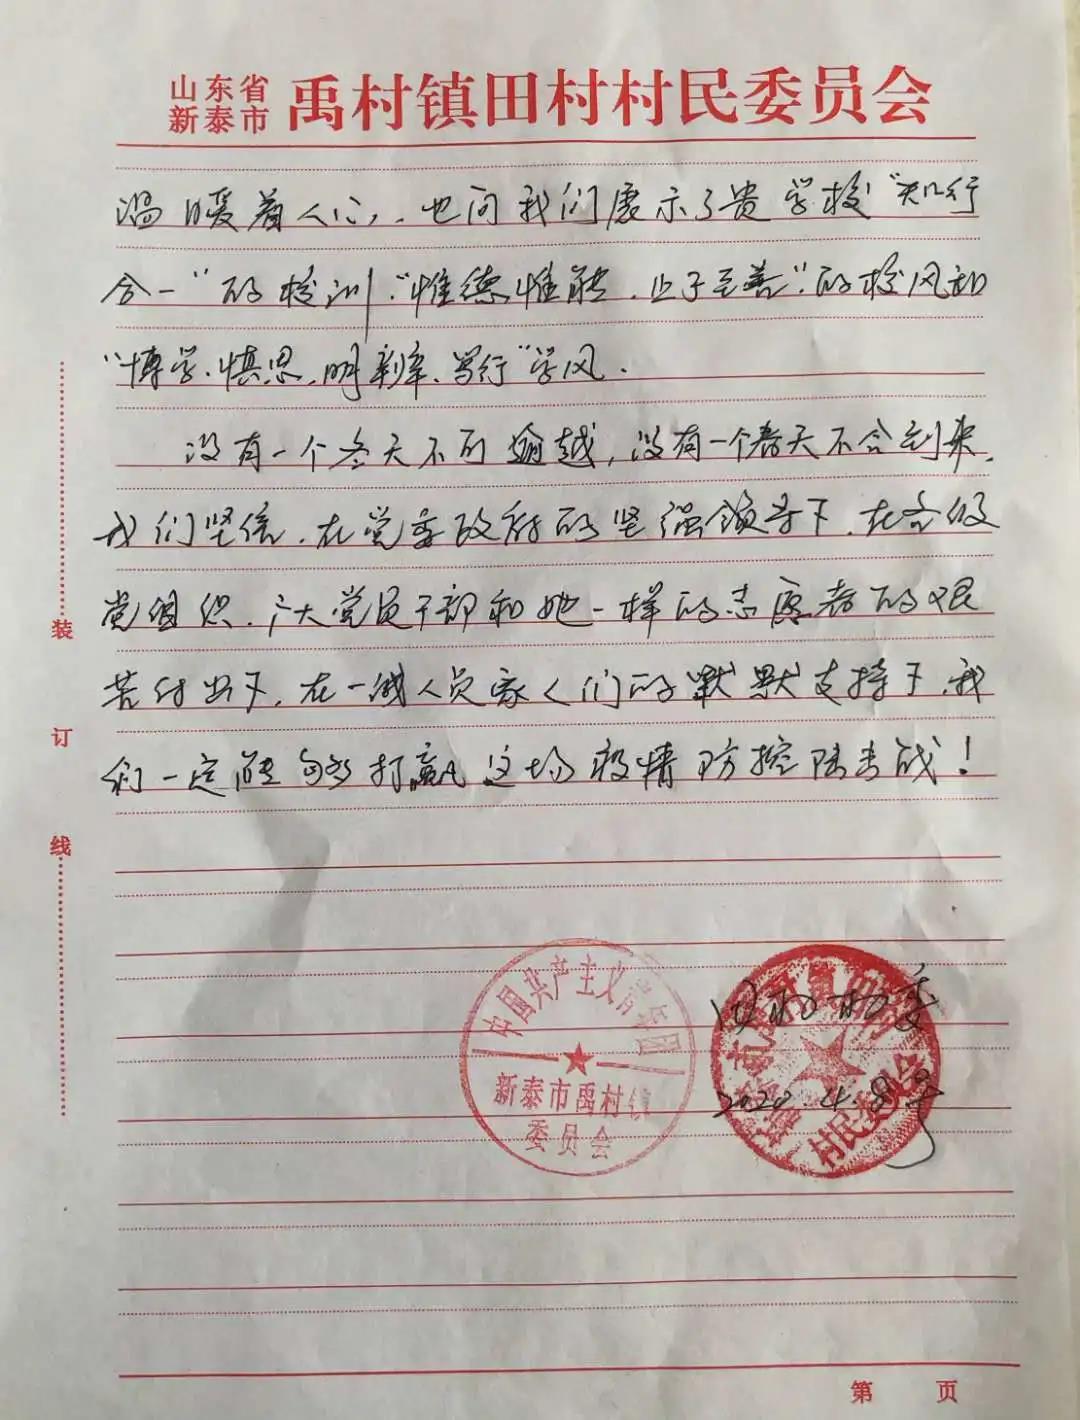 山东省
新泰市 禹村镇田村村民委员会
温暖着人心，也向我们展示了贵学校“知行
合一”的校训，“惟德惟能，止于至善”的校风和
“博学、慎思、明辨、笃行”学风。
没有一个冬天不可逾越，没有一个春天不会到来。
我们坚信，在党委政府的坚强领导下，在各级
党组织、广大党员干部和她一样的志愿者的艰
苦付出下，在一线人员家人们的默默支持下，我
们一定能够打赢这场疫情防控阻击战！
装
订
线
中国共产主义青年团
新泰市禹村镇
委员会
田村村委
2020.4.8号
村民委员会
第 页